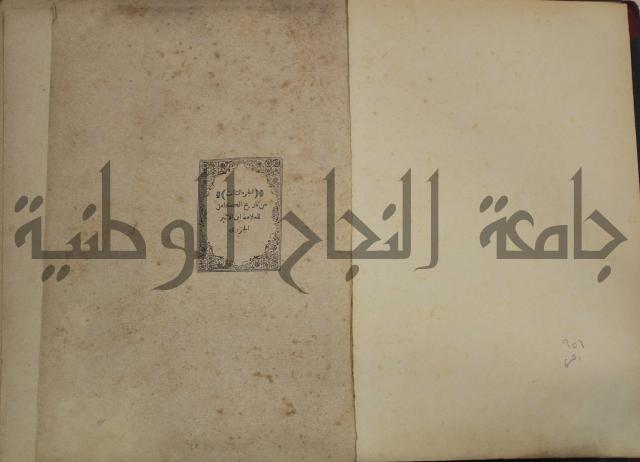 جامعة النجاح الوطنية
(الجزء الثالث)
من تاريخ الكامل
للعلامة ابن الاثير
الجزري
٩٥٦